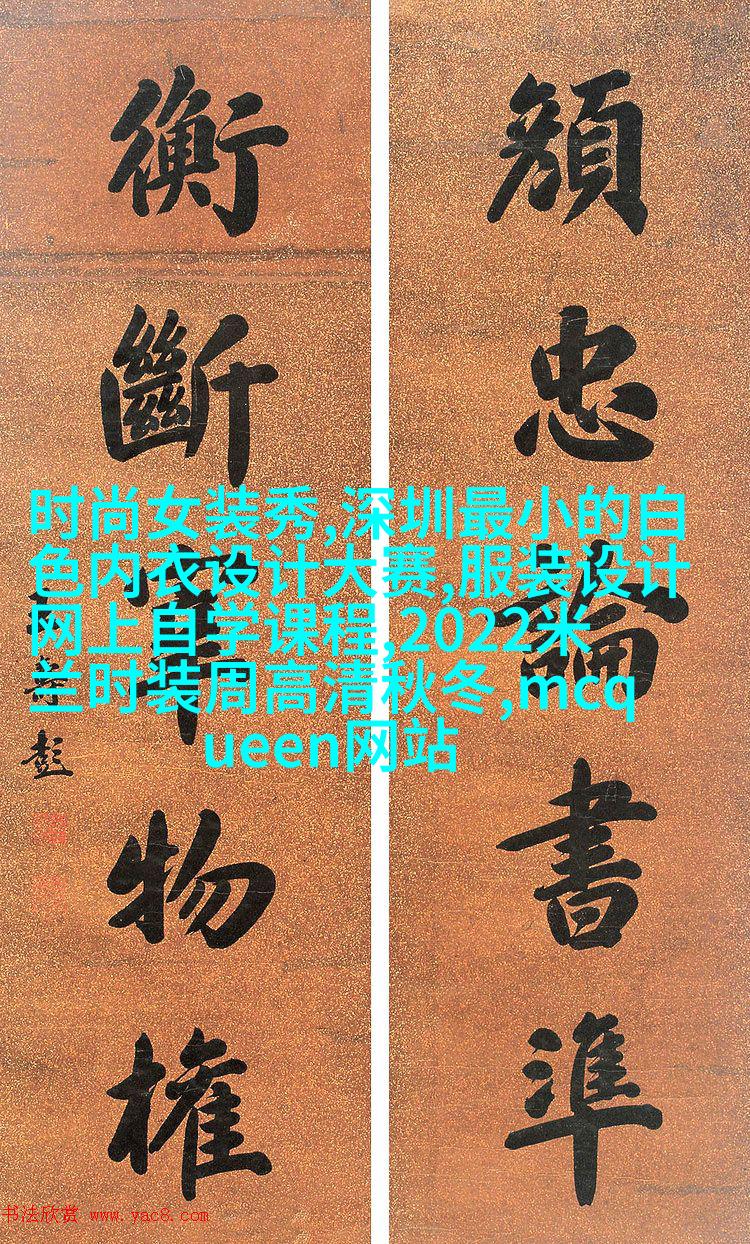 忠論書準
衡斷軍物權
彭
时尚女装秀,深圳最小的白
色内衣设计大赛,服装设计
网上自学课程,2022米
兰时装周高清秋冬,mcq
ueen网站
书法欣赏 www.yac8.com